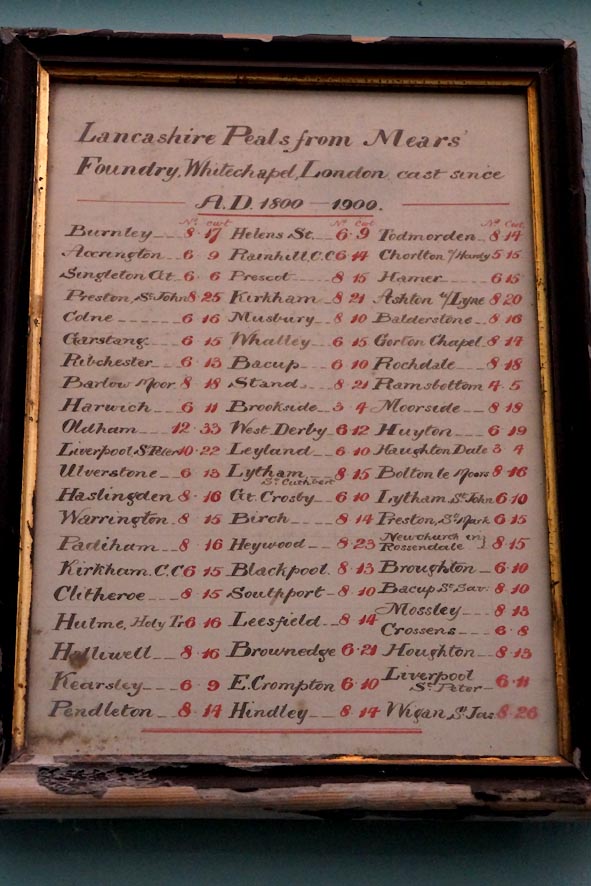 Lancashire Peals from Mears'
Foundry, Whitechapel, London, cast since
A.D. 1800 — 1900.
No. Cwt
Burnley 8·17
Accrington 6 9
Singleton Gt. 6 6
Preston, St John 8 25
Colne 6 16
Garstang 6 15
Ribchester 6 13
Barlow Moor 8 18
Harwich 6 11
Oldham 12·33
Liverpool St Peter 10·22
Ulverstone 6 13
Haslingden 8·16
Warrington 8 15
Padiham 8 16
Kirkham. C.C 6 15
Clitheroe 8 15
Hulme, Holy Tr 6 16
Halliwell 8·16
Kearsley 6 9
Pendleton 8·14
No. Cwt
Helens St. 6·9
Rainhill C.C 6 14
Prescot 8 15
Kirkham 8 21
Musbury 8 10
Whalley 6 15
Bacup 6 10
Stand 8·21
Brookside 3·4
West Derby 6 12
Leyland 6·10
Lytham 8 15
St Cuthbert
Gt. Crosby 6 10
Birch 8 14
Heywood 8·23
Blackpool 8·13
Southport 8·10
Leesfield 8 14
Brownedge 6·21
E. Crompton 6·10
Hindley 8·14
No. Cwt
Todmorden 8·14
Chorlton c/Hardy 5 15
Hamer 6 15
Ashton u/Lyne 8 20
Balderstone 8·16
Gorton Chapel 8·14
Rochdale 8·18
Ramsbottom 4·5
Moorside 8·18
Huyton 6·19
Haughton Dale 3 4
Bolton le Moors 8·16
Lytham St John 6·10
Preston, St Mark 6 15
Newchurch in
Rossendale } 8·15
Broughton 6·10
Bacup St Sav: 8·10
Mossley 8·13
Crossens 6·8
Houghton 8·13
Liverpool
St Peter 6·11
Wigan, St Jas 8·26